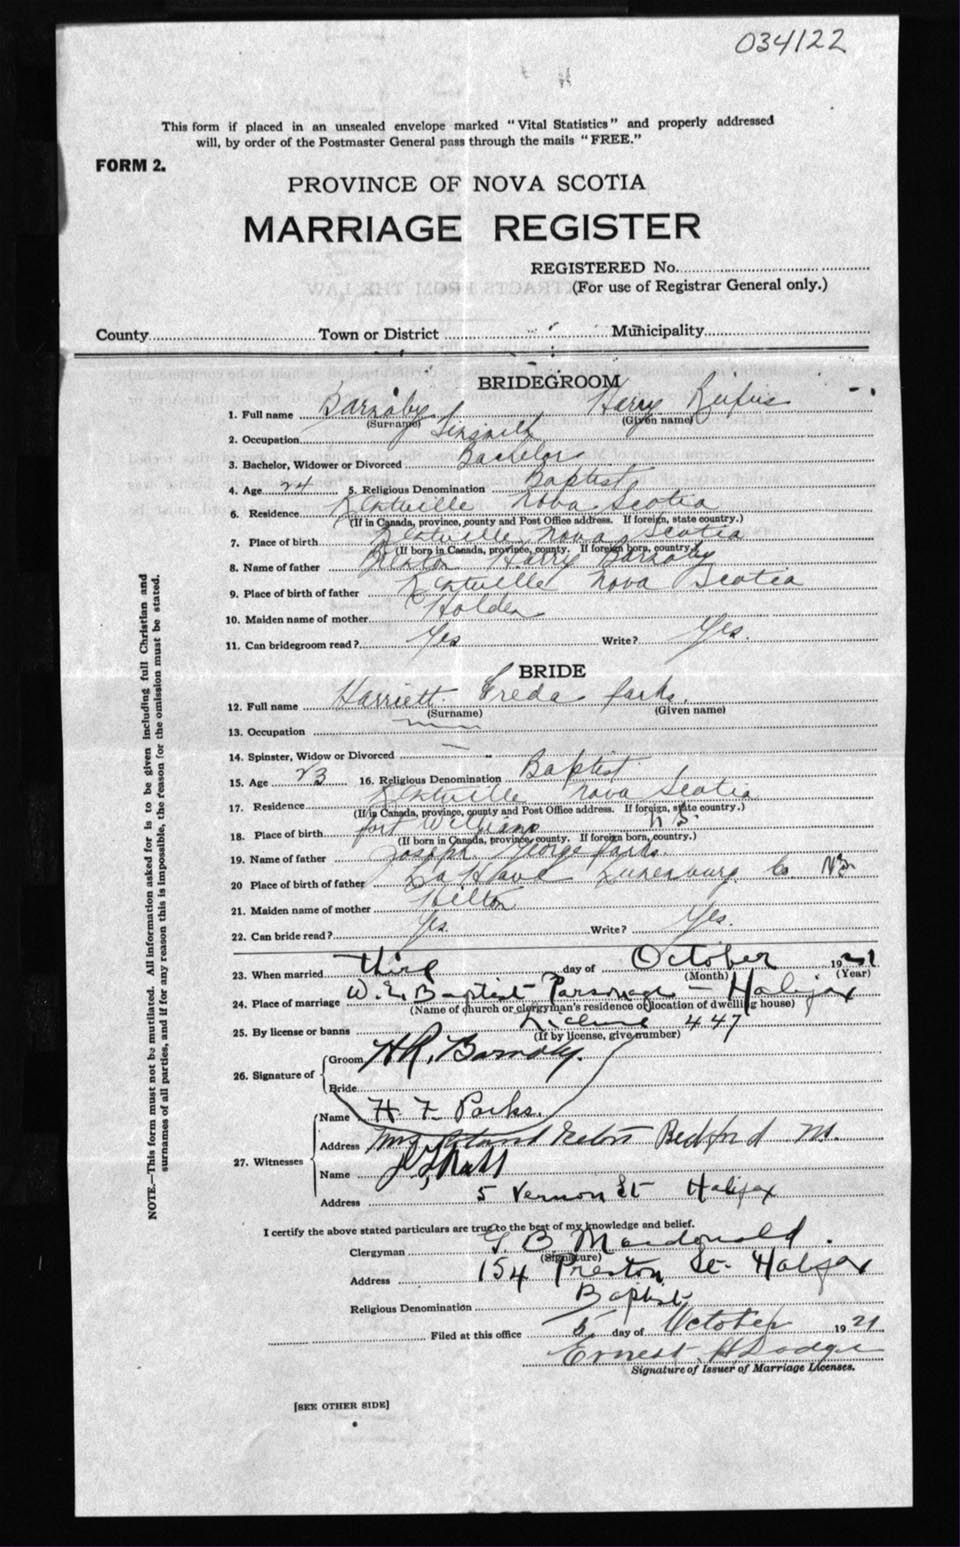 034122
This form if placed in an unsealed envelope marked "Vital Statistics" and properly addressed
will, by order of the Postmaster General pass through the mails "FREE."
FORM 2.
PROVINCE OF NOVA SCOTIA
MARRIAGE REGISTER
REGISTERED No.
(For use of Registrar General only.)
County Town or District Municipality
BRIDEGROOM
1. Full name Barnaby Harry Rufus
(Surname) (Given name)
2. Occupation Tinsmith
3. Bachelor, Widower or Divorced Bachelor
4. Age 24 5. Religious Denomination Baptist
6. Residence Kentville Nova Scotia
(If in Canada, province, county and Post Office address. If foreign, state country.)
7. Place of birth Kentville Nova Scotia
(If born in Canada, province, county. If foreign born, country.)
8. Name of father Harry Barnaby
9. Place of birth of father Kentville Nova Scotia
10. Maiden name of mother Holden
11. Can bridegroom read? Yes Write? Yes.
BRIDE
12. Full name Harriett Freda Parks.
(Surname) (Given name)
13. Occupation
14. Spinster, Widow or Divorced —
15. Age 23 16. Religious Denomination Baptist
17. Residence Kentville Nova Scotia
(If in Canada, province, county and Post Office address. If foreign, state country.)
18. Place of birth Port Williams N.S.
(If born in Canada, province, county. If foreign born, country.)
19. Name of father Joseph George Parks.
20 Place of birth of father La Have Lunenburg Co NS
21. Maiden name of mother Hilton
22. Can bride read? Yes. Write? Yes.
23. When married third day of October 1921
(Month) (Year)
24. Place of marriage W. E. Baptist Parsonage - Halifax
(Name of church or clergyman's residence or location of dwelling house)
25. By license or banns License 447
(If by license, give number)
26. Signature of
Groom H R. Barnaby.
Bride
27. Witnesses
Name H F Parks.
Address Bedford NS.
Name
Address 5 Vernon St Halifax
I certify the above stated particulars are true to the best of my knowledge and belief.
Clergyman G. B Macdonald.
(Signature)
Address 154 Preston St- Halifax
Religious Denomination Baptist
Filed at this office 5 day of October 1921
Ernest H Dodge
Signature of Issuer of Marriage Licenses.
[SEE OTHER SIDE]
NOTE.—This form must not be mutilated. All information asked for is to be given including full Christian and
surnames of all parties, and if for any reason this is impossible, the reason for the omission must be stated.